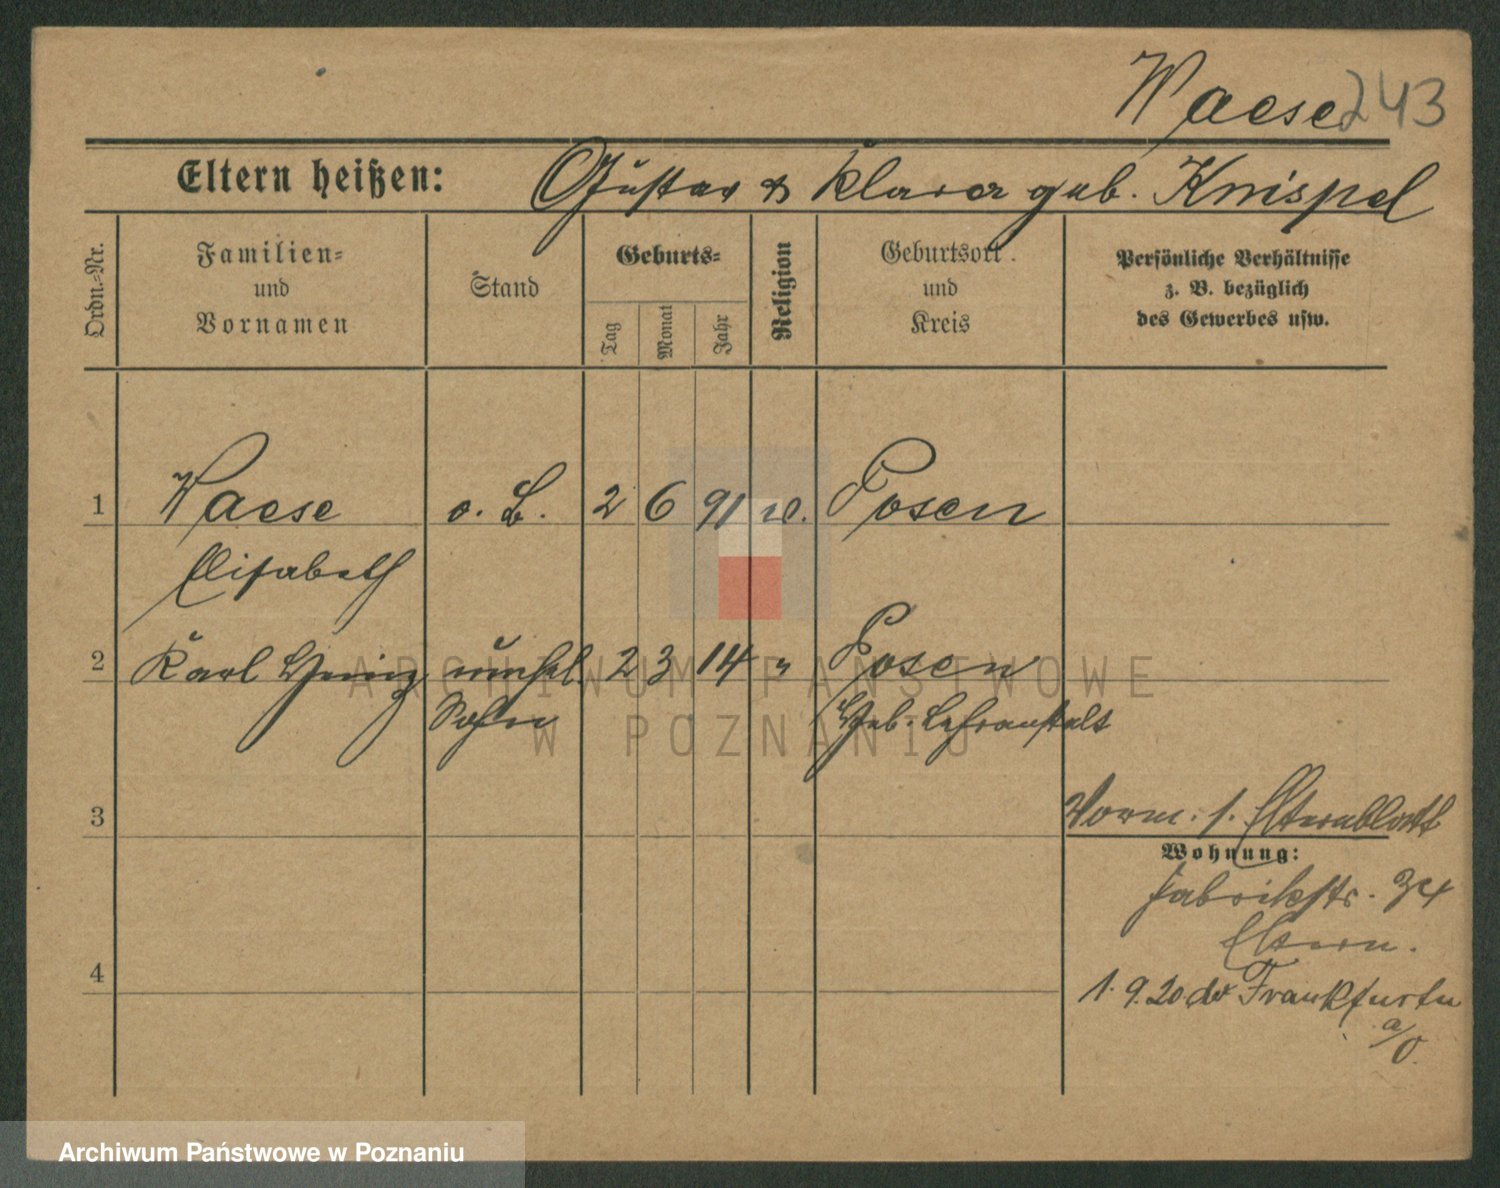 Waese 243
Eltern heißen: Gustav & Klara geb. Knispel
Ordn.-Nr.
Familien-
und
Vornamen
Stand
Geburts-
Tag
Monat
Jahr
Religion
Geburtsort
und
Kreis
Persönliche Verhältnisse
z. B. bezüglich
des Gewerbes usw.
1 Waese o. B. 2 6 91 Posen
Elisabeth
2 Karl Heinz unehel. 2 3 14 " Posen
Sohn Heb. Lehranstalt
3 Vorm. s. Elternblatt
Wohnung:
Fabrikstr. 34
Eltern.
4 1. 9. 20. Frankfurt
a/O.
ARCHIWUM PAŃSTWOWE
W POZNANIU
Archiwum Państwowe w Poznaniu